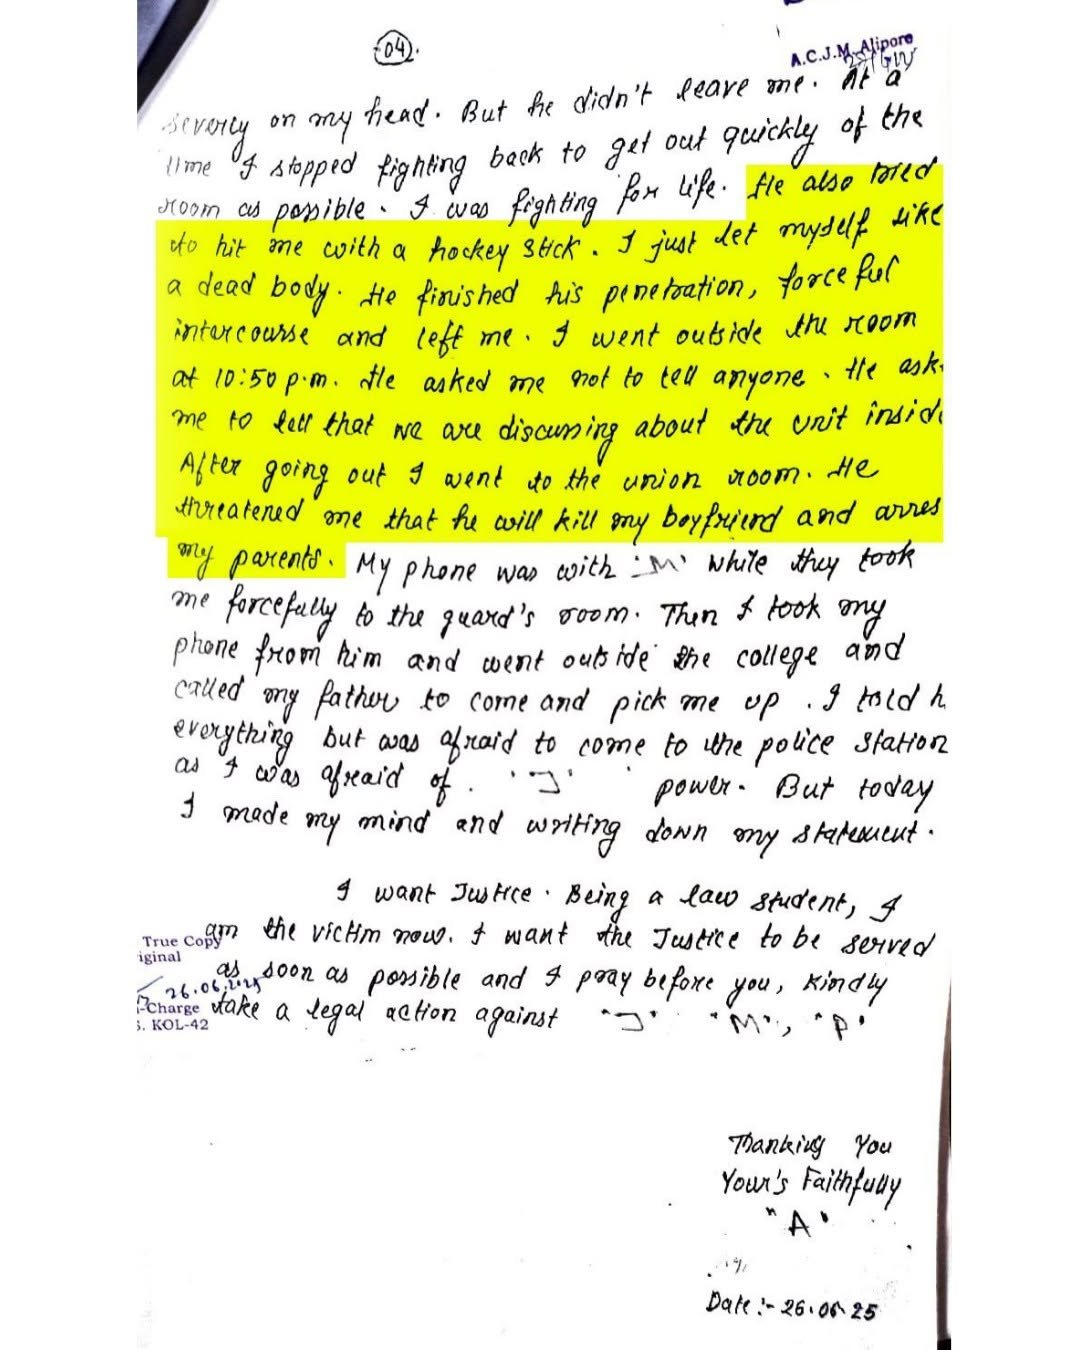 04
A.C.J.M. Alipore
severly on my head. But he didn't leave me. At a
time I stopped fighting back to get out quickly of the
room as possible. I was fighting for life. He also tried
to hit me with a hockey stick. I just let myself like
a dead body. He finished his penetration, forceful
intercourse and left me. I went outside the room
at 10:50 p.m. He asked me not to tell anyone. He ask
me to tell that we are discussing about the unit insid
After going out I went to the union room. He
threatened me that he will kill my boyfriend and arres
my parents. My phone was with "M" while they took
me forcefully to the guard's room. Then I took my
phone from him and went outside the college and
called my father to come and pick me up. I told h
everything but was afraid to come to the police station
as I was afraid of "J" power. But today
I made my mind and writing down my statement.
I want Justice. Being a law student, I
am the victim now. I want the Justice to be served
as soon as possible and I pray before you, kindly
take a legal action against "J" "M", "P"
True Copy
iginal
26.06.2025
-Charge
S. KOL-42
Thanking You
Your's Faithfully
"A"
Date :- 26.06.25